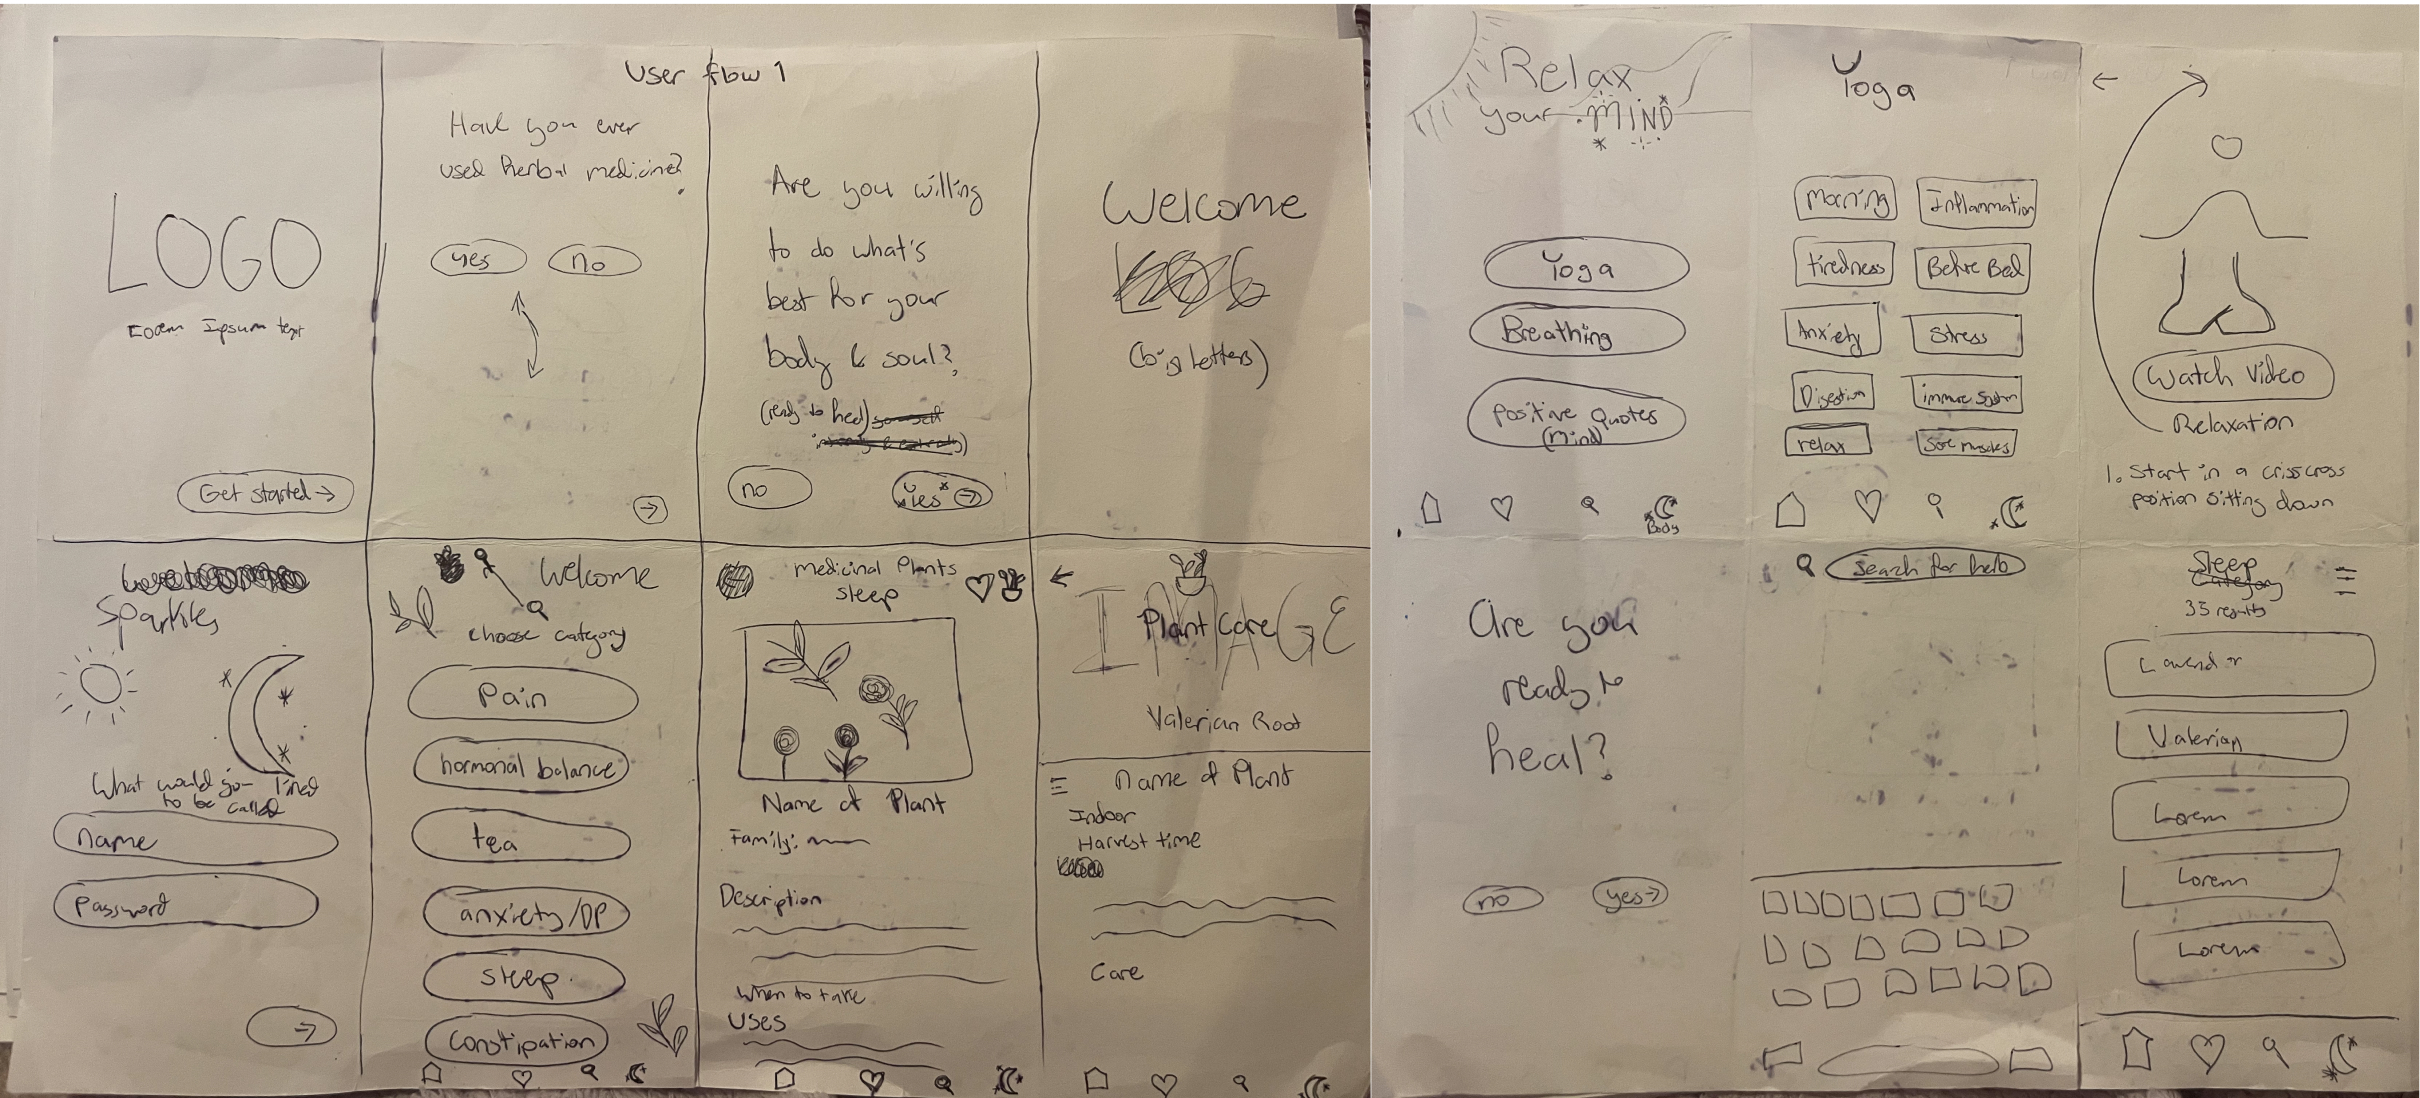 User flow 1
LOGO
Lorem Ipsum text
Get started →
Have you ever
used herbal medicine?
yes
no
Are you willing
to do what's
best for your
body & soul?
(ready to heal)
no
Yes
Welcome
(big letters)
Sparkles
What would you liked
to be called
name
Password
Welcome
choose category
Pain
hormonal balance
tea
anxiety/DP
sleep
Constipation
medicinal Plants
sleep
Name of Plant
Family:
Description
When to take
Uses
IMAGE
Plant Care
Valerian Root
Name of Plant
Indoor
Harvest time
Care
Relax
your MIND
Yoga
Breathing
Positive Quotes
(Mind)
Body
Yoga
Morning
Inflammation
tiredness
Before Bed
Anxiety
Stress
Digestion
immune System
relax
Sore muscles
Watch Video
Relaxation
1. Start in a crisscross
position sitting down
Are you
ready to
heal?
no
yes →
Search for help
Sleep
Category
35 results
Lavender
Valerian
Lorem
Lorem
Lorem